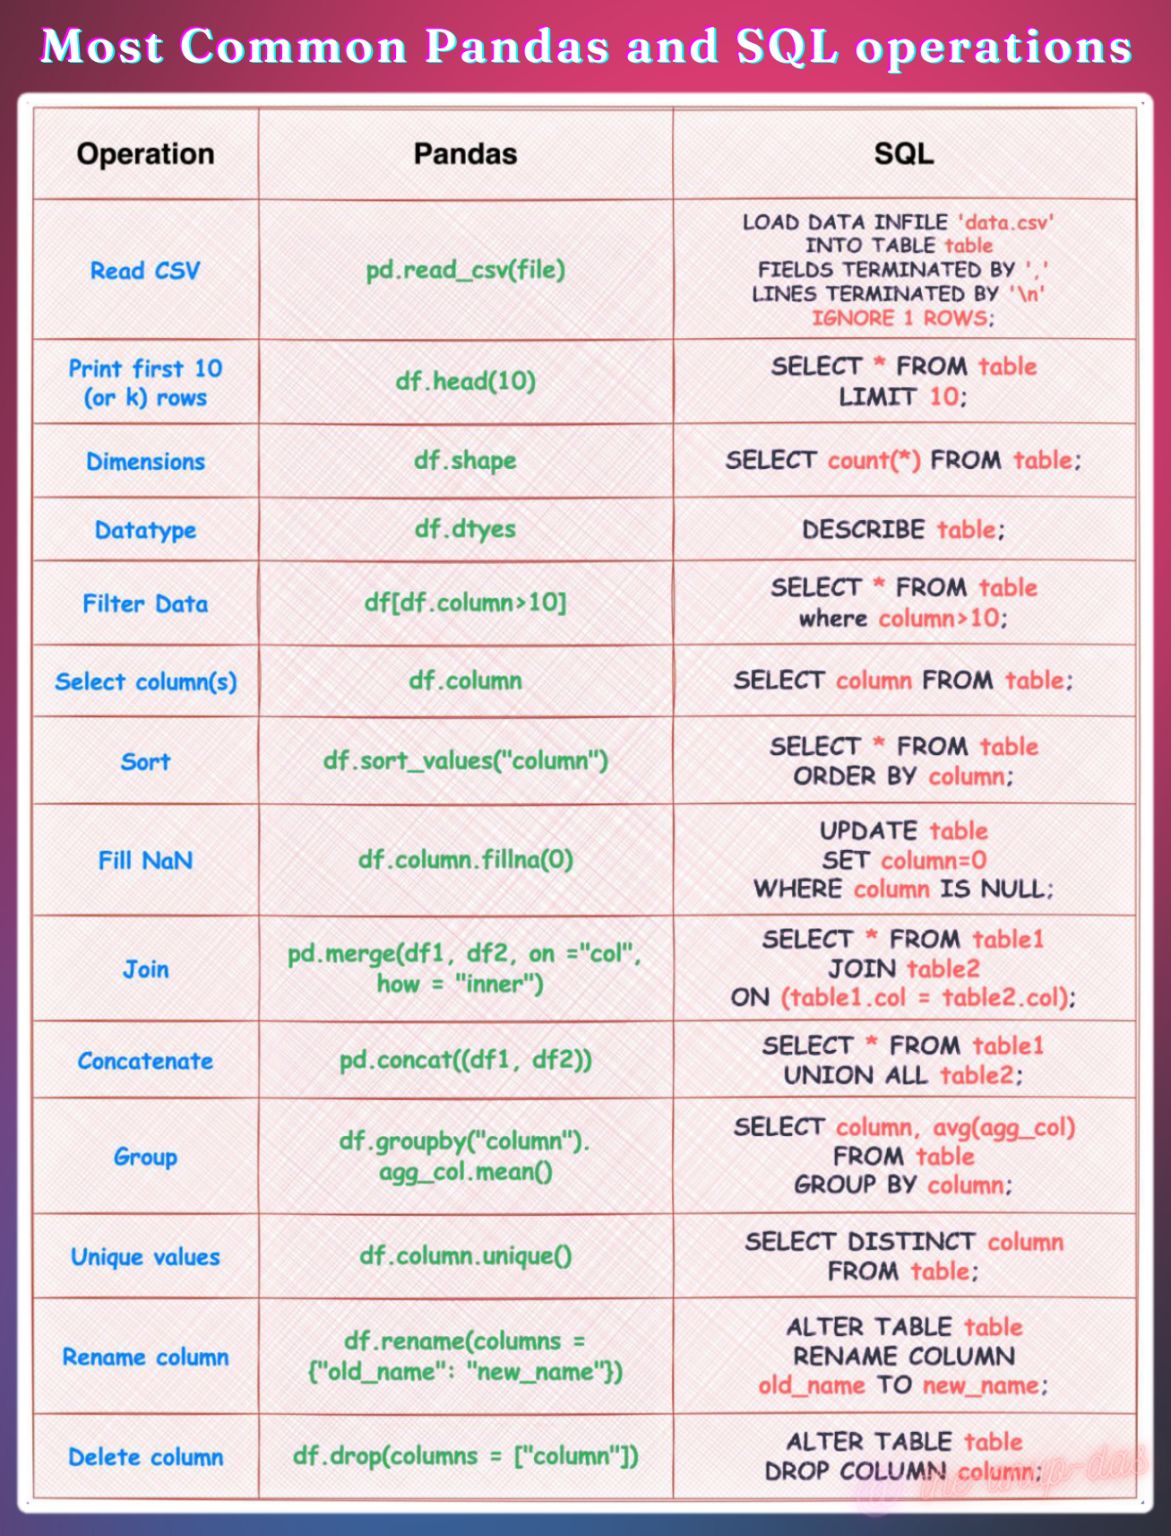 Most Common Pandas and SQL operations
Operation
Pandas
SQL
Read CSV
pd.read_csv(file)
LOAD DATA INFILE 'data.csv'
INTO TABLE table
FIELDS TERMINATED BY ','
LINES TERMINATED BY '\n'
IGNORE 1 ROWS;
Print first 10
(or k) rows
df.head(10)
SELECT * FROM table
LIMIT 10;
Dimensions
df.shape
SELECT count(*) FROM table;
Datatype
df.dtyes
DESCRIBE table;
Filter Data
df[df.column>10]
SELECT * FROM table
where column>10;
Select column(s)
df.column
SELECT column FROM table;
Sort
df.sort_values("column")
SELECT * FROM table
ORDER BY column;
Fill NaN
df.column.fillna(0)
UPDATE table
SET column=0
WHERE column IS NULL;
Join
pd.merge(df1, df2, on ="col",
how = "inner")
SELECT * FROM table1
JOIN table2
ON (table1.col = table2.col);
Concatenate
pd.concat((df1, df2))
SELECT * FROM table1
UNION ALL table2;
Group
df.groupby("column").
agg_col.mean()
SELECT column, avg(agg_col)
FROM table
GROUP BY column;
Unique values
df.column.unique()
SELECT DISTINCT column
FROM table;
Rename column
df.rename(columns =
{"old_name": "new_name"})
ALTER TABLE table
RENAME COLUMN
old_name TO new_name;
Delete column
df.drop(columns = ["column"])
ALTER TABLE table
DROP COLUMN column;